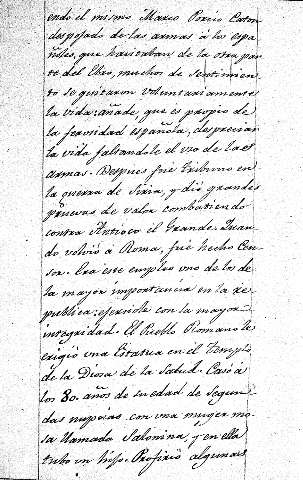 endo el mismo Marco Porcio Caton
despojado de las armas à los espa-
ñoles, que havitaban de la otra par-
te del Ebro, muchos de sentimien-
to se quitaron voluntariamente
la vida: añade, que es propio de
la feroridad española, despreciar
la vida faltandole el uso de las
armas. Despues fué tribuno en
la guerra de Siria, y dió grandes
pruevas de valor combatiendo
contra Antioco el Grande. Quan-
do volvió à Roma, fué hecho Cen-
sor. Era este empleo uno de los de
la mayor importancia en la re-
publica: ejerciole con la mayor
integridad. El Pueblo Romano le
erigió una Estatua en el templo
de la Diosa de la Salud. Casó à
los 80. años de su edad de segun-
das nupcias con una muger mo-
sa llamada Salonina, y en ella
tubo un hijo. Profirió algunas